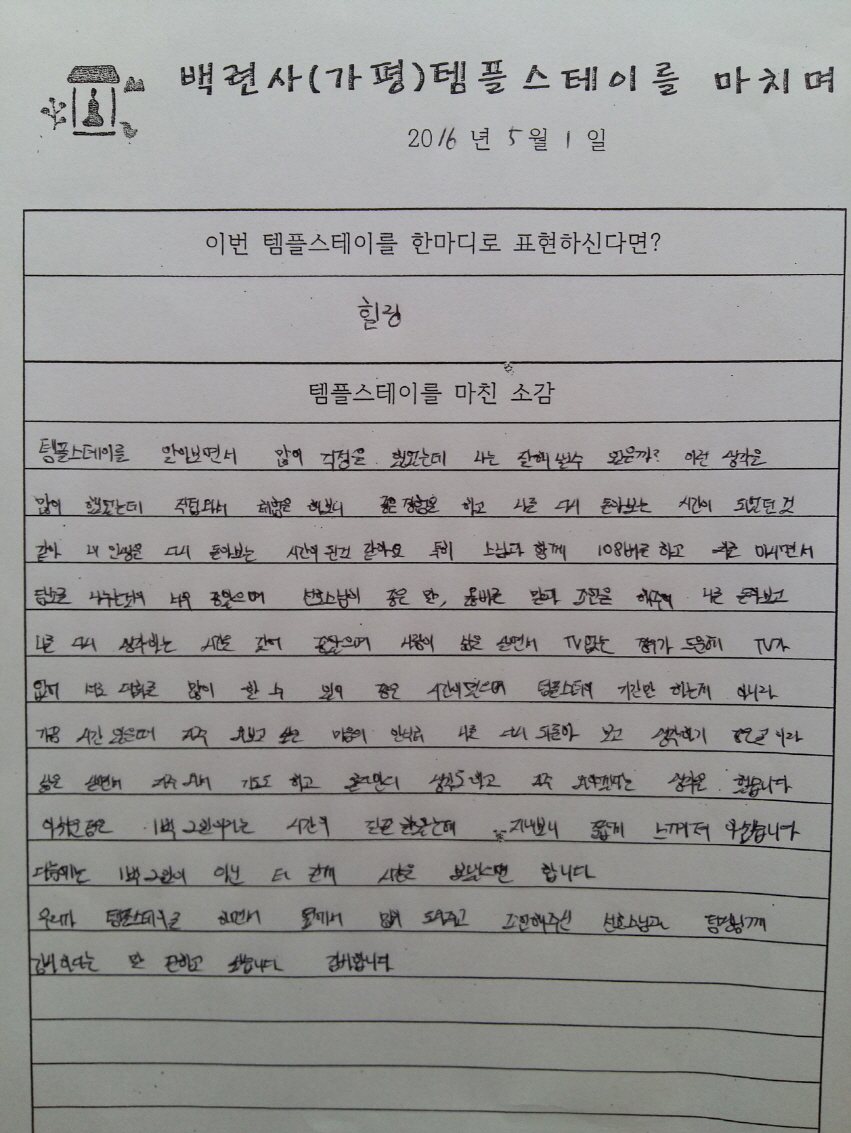 백련사(가평)템플스테이를 마치며
2016 년 5 월 1 일
이번 템플스테이를 한마디로 표현하신다면?
힐링
템플스테이를 마친 소감
템플스테이를 알아보면서 많이 걱정을 했었는데 나는 잘해낼수 있을까? 이런 생각을
많이 했었는데 직접와서 체험을 해보니 좋은 경험을 하고 나를 다시 돌아보는 시간이 되었던 것
같아 내 인생을 다시 돌아보는 시간이 된것 같아요 특히 스님과 함께 108배를 하고 차를 마시면서
담소를 나누는것이 너무 좋았으며 선호스님이 좋은 말, 올바른 말과 조언을 해주어 나를 돌아보고
나를 다시 생각하는 시간을 갖어 좋았으며 사람이 삶을 살면서 TV없는 TV가
없어 서로 대화를 많이 할 수 있어 좋은 시간이었으며 템플스테이 기간만 하는게 아니라
가끔 시간 있을때 자주 와보고 싶은 마음이 나를 다시 되돌아 보고 생각하기 좋은곳 이라
삶을 살면서 자주 와서 기도도 하고 생각도 하고 자주 생각을 했습니다
1박 2일이라는 시간이 길줄 알았는데 지내보니 짧게 느껴져 아쉽습니다
다음에는 1박 2일이 아닌 더 길게 시간을 보냈으면 합니다
우리가 템플스테이를 하면서 옆에서 많이 도와주고 조언해주신 선호스님과 팀장님께
감사하다는 말 전하고 싶습니다 감사합니다